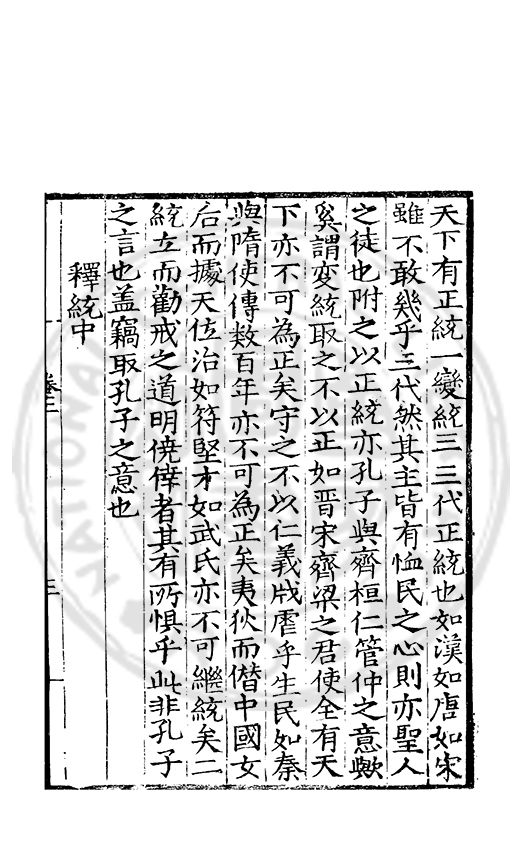 天下有正統一變統三三代正統也如漢如唐如宋
雖不敢幾乎三代然其主皆有恤民之心則亦聖人
之徒也附之以正統亦孔子與齊桓仁管仲之意歟
奚謂变統取之不以正如晋宋齊梁之君使全有天
下亦不可為正矣守之不以仁義戕虐乎生民如秦
與隋使傳数百年亦不可為正矣夷狄而僭中國女
后而據天位治如符堅才如武氏亦不可繼統矣二
統立而勸戒之道明僥倖者其有所惧乎此非孔子
之言也盖竊取孔子之意也
釋統中